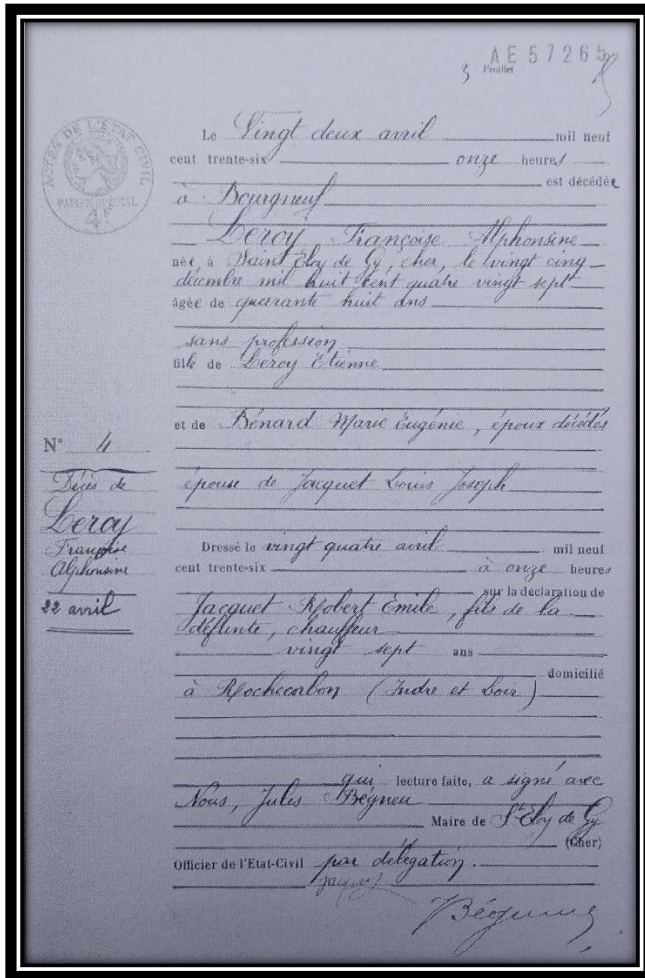 AE 57265
3 Feuillet
ACTES DE L'ETAT CIVIL
PAPIER SPECIAL
4F
Le Vingt deux avril mil neuf
cent trente-six onze heures
est décédée
à Bourgneuf
Leroy Françoise Alphonsine
née à Saint Eloy de Gy, cher, le vingt cinq
décembre mil huit cent quatre vingt sept
âgée de quarante huit ans
sans profession
fille de Leroy Etienne
et de Bénard Marie Eugénie, époux décédés
épouse de Jacquet Louis Joseph
N° 4
Décès de
Leroy
Françoise
Alphonsine
22 avril
Dressé le vingt quatre avril mil neuf
cent trente-six à onze heures
sur la déclaration de
Jacquet Robert Emile, fils de la
défunte, chauffeur
vingt sept ans
domicilié
à Rochecorbon (Indre et Loir)
qui lecture faite, a signé avec
Nous, Jules
Maire de St Eloy de Gy
(Cher)
Officier de l'Etat-Civil par délégation.
Jacquet